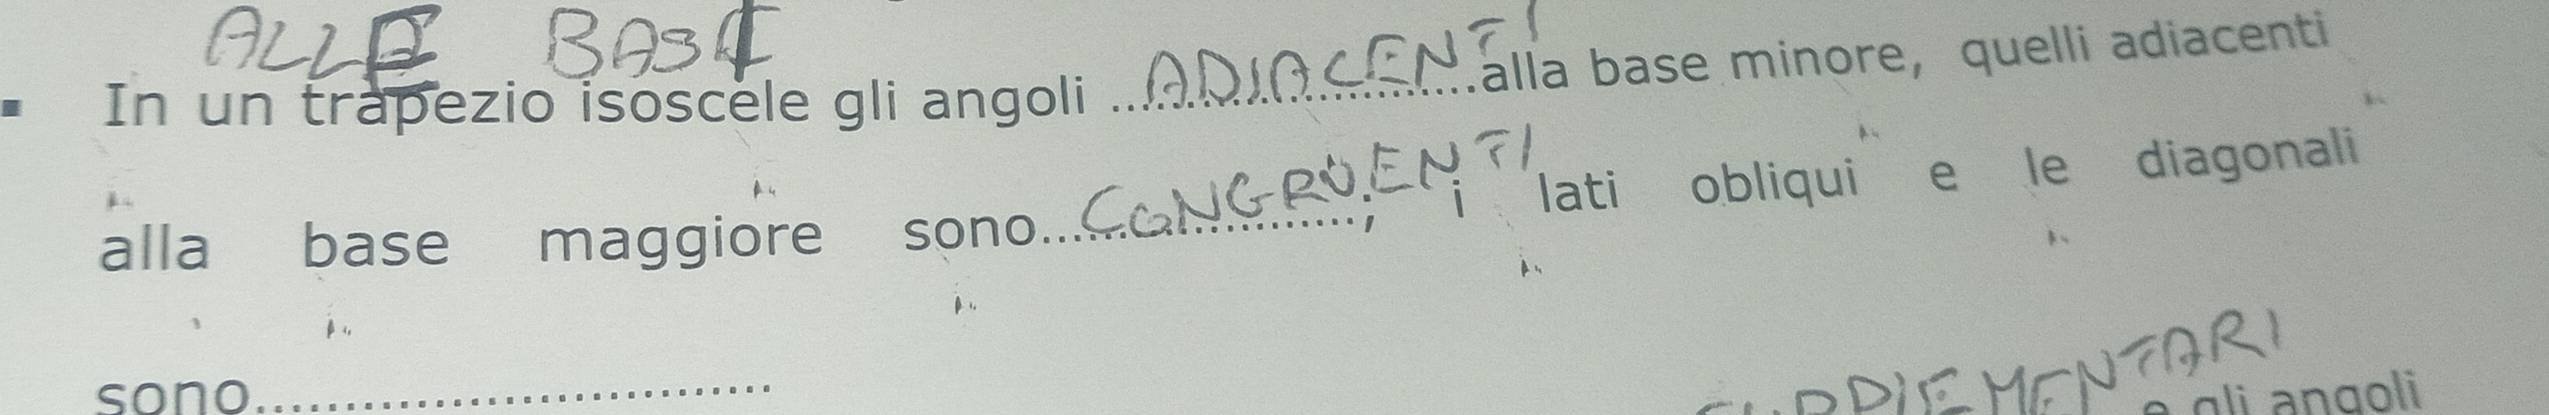 ALLE BASI
▪ In un trapezio isoscele gli angoli ....ADIACENTI....alla base minore, quelli adiacenti
alla base maggiore sono....CONGRUENTI...., i lati obliqui e le diagonali
sono..............................
e gli angoli